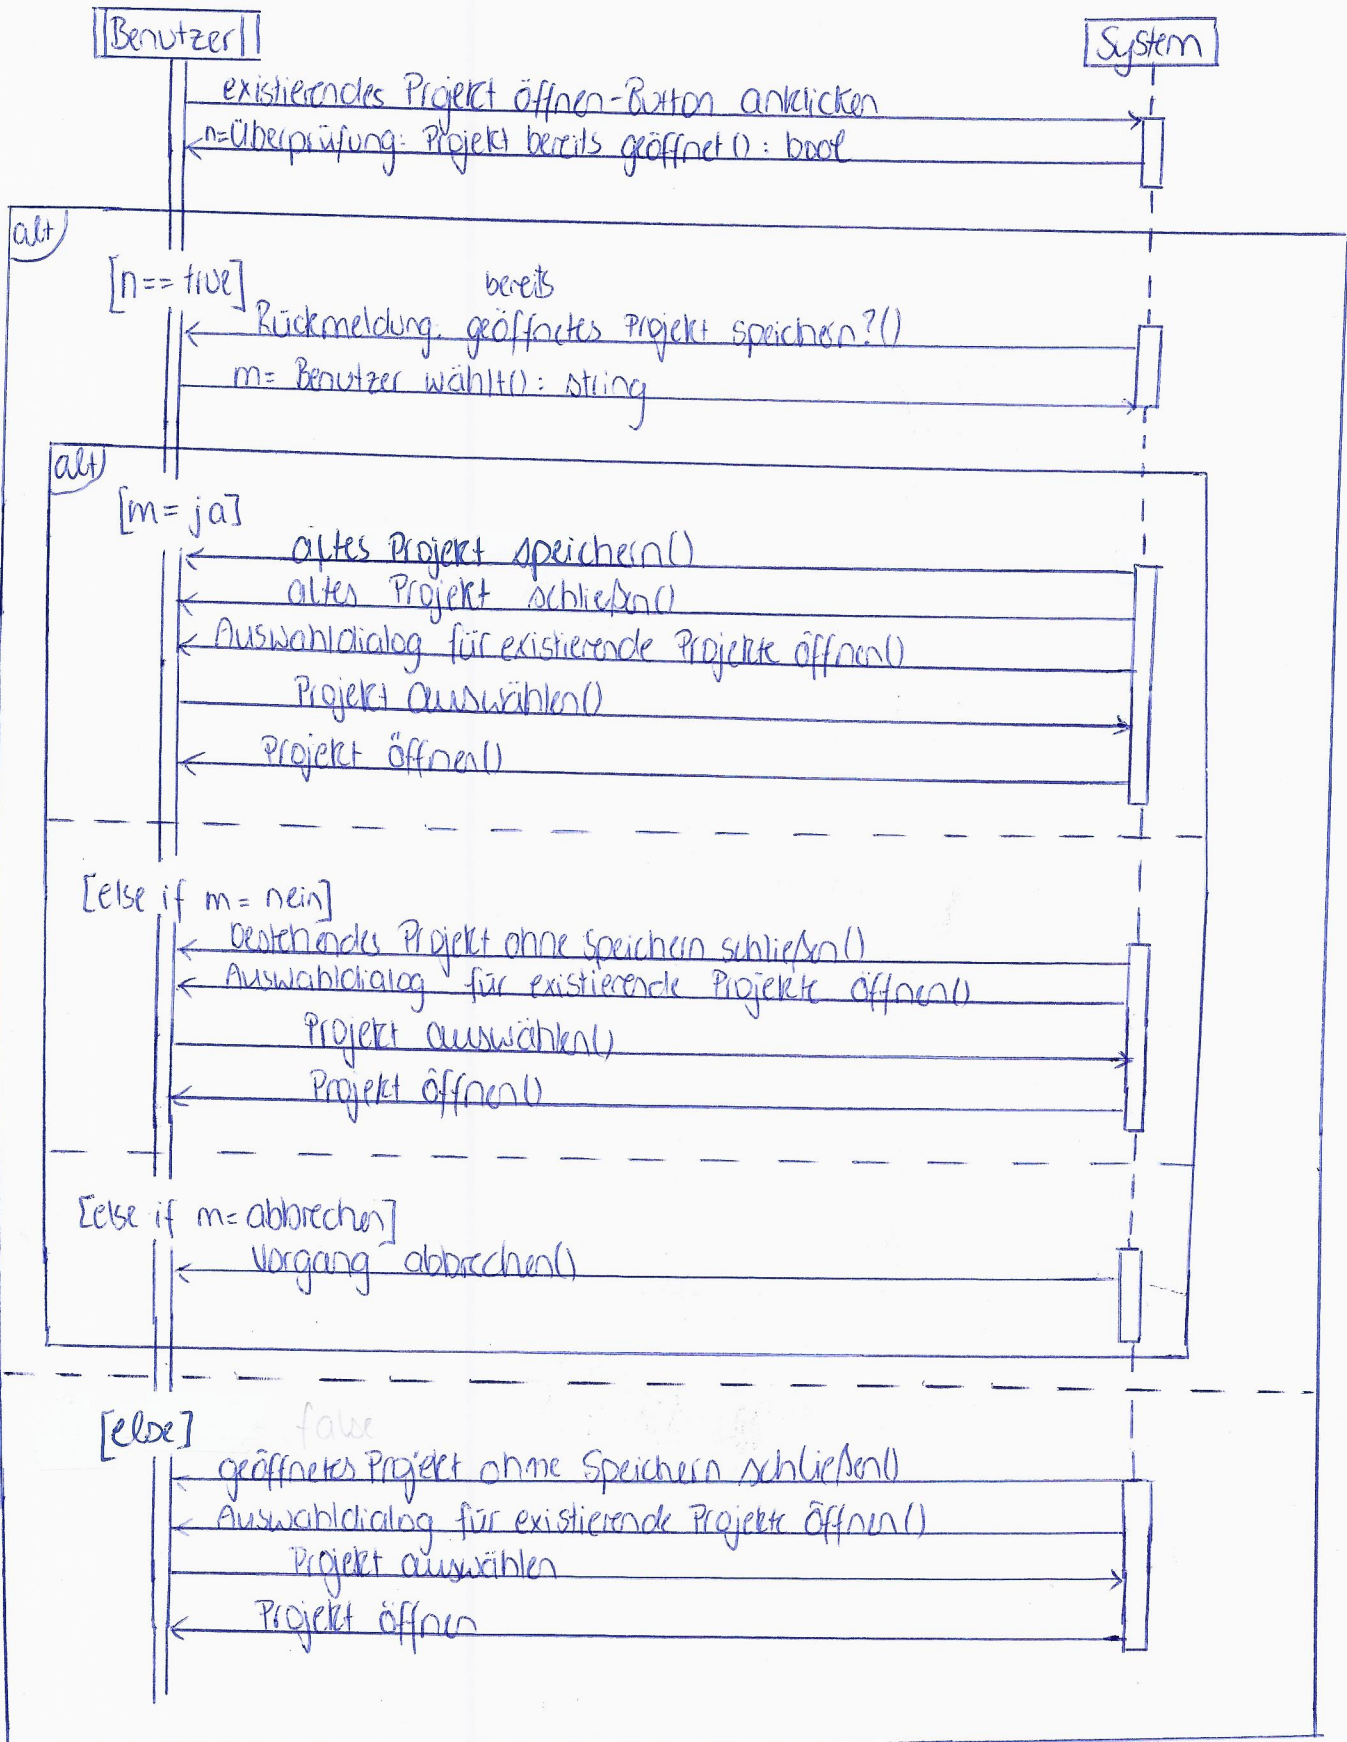 Benutzer
System
existierendes Projekt öffnen-Button anklicken
n=Überprüfung: Projekt bereits geöffnet(): bool
alt
[n== true]
bereits
Rückmeldung: geöffnetes Projekt speichern?()
m= Benutzer wählt(): string
alt
[m= ja]
altes Projekt speichern()
altes Projekt schließen()
Auswahldialog für existierende Projekte öffnen()
Projekt auswählen()
Projekt öffnen()
[else if m= nein]
bestehendes Projekt ohne Speichern schließen()
Auswahldialog für existierende Projekte öffnen()
Projekt auswählen()
Projekt öffnen()
[else if m= abbrechen]
Vorgang abbrechen()
[else]
false
geöffnetes Projekt ohne Speichern schließen()
Auswahldialog für existierende Projekte öffnen()
Projekt auswählen
Projekt öffnen